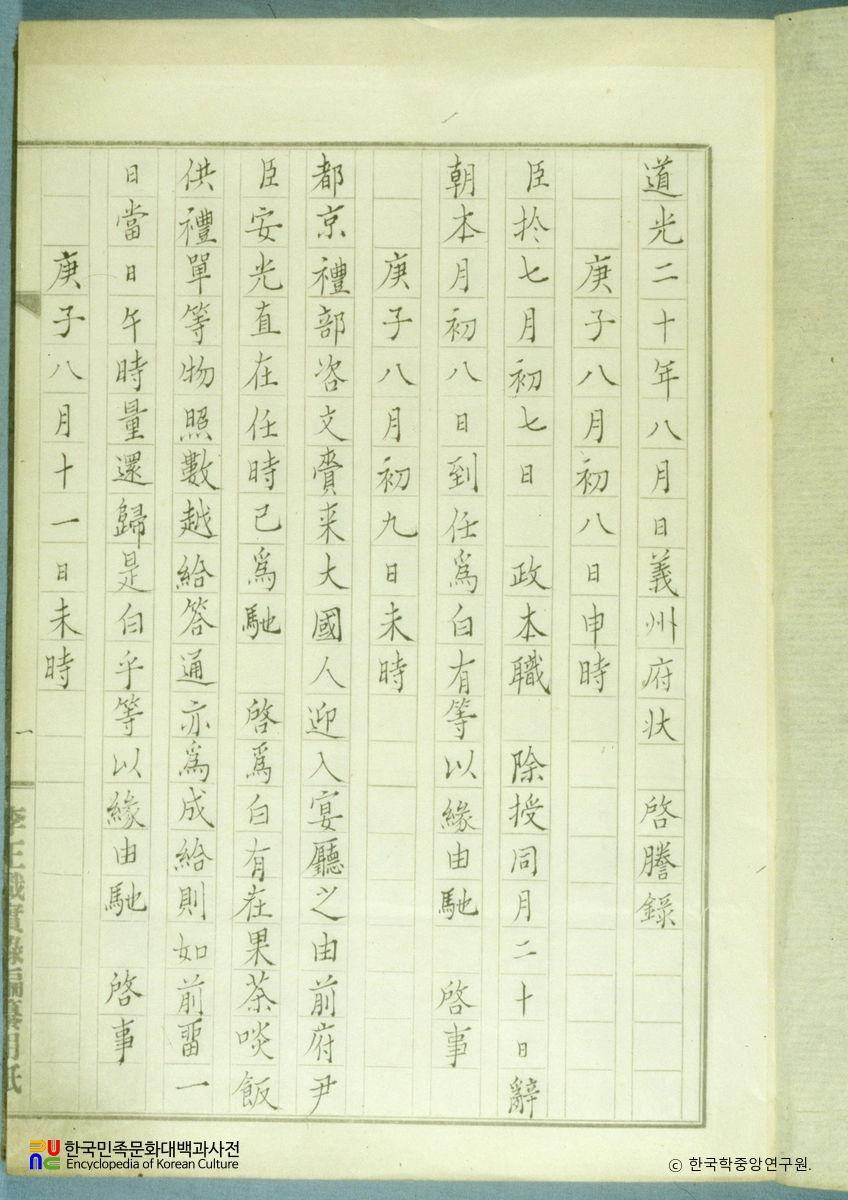 道光二十年八月日義州府状　啓謄錄
庚子八月初八日申時
臣扵七月初七日　政本職　除授同月二十日辭
朝本月初八日到任爲白有等以緣由馳　啓事
庚子八月初九日未時
都京禮部咨文賫来大國人迎入宴廳之由前府尹
臣安光直在任時已爲馳　啓爲白有在果茶啖飯
供禮單等物照數越給答通亦爲成給則如前畱一
日當日午時量還歸是白乎等以緣由馳　啓事
庚子八月十一日未時
一
李王職實錄編纂用紙
한국민족문화대백과사전
Encyclopedia of Korean Culture
ⓒ 한국학중앙연구원.